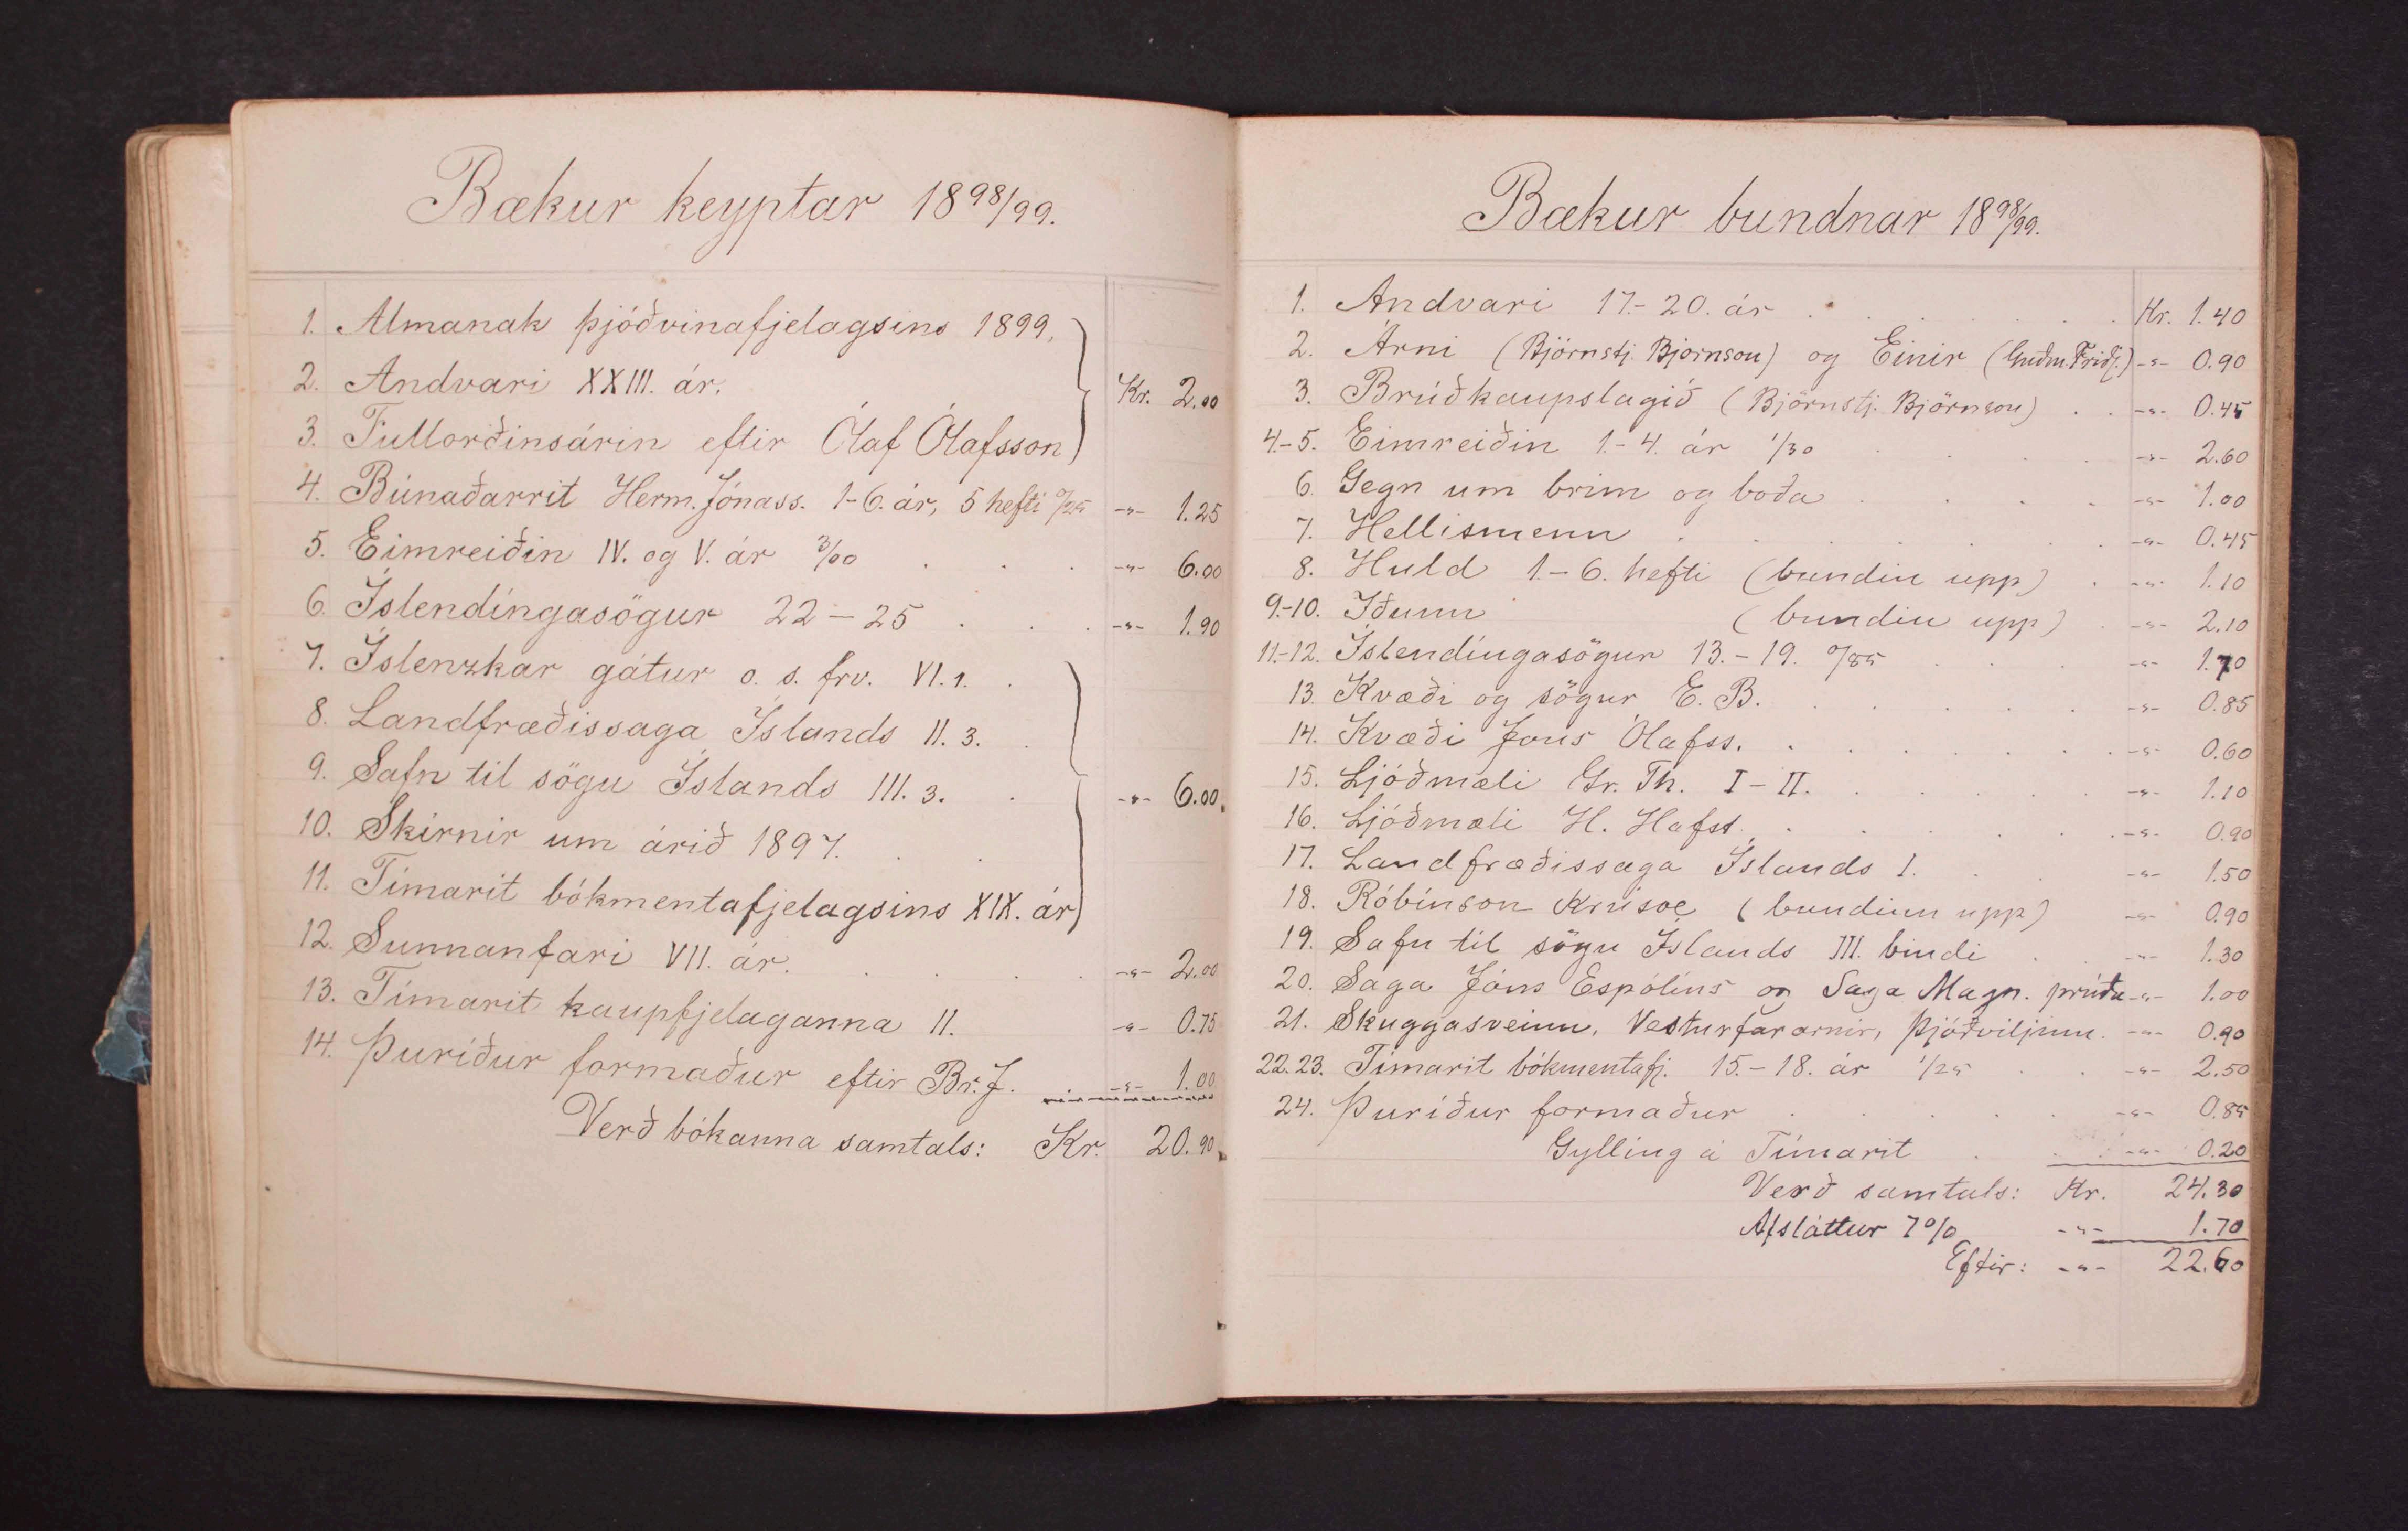 Bækur keyptar 1898/99.
1. Almanak þjóðvinafjelagsins 1899.
2. Andvari XXIII. ár.
Kr. 2.00
3. Fullorðinsárin eftir Ólaf Ólafsson
4. Búnaðarrit Herm. Jónass. 1-6. ár, 5 hefti 0/25 -"- 1.25
5. Eimreiðin IV. og V. ár 3/00 . . . -"- 6.00
6. Íslendíngasögur 22-25 . . . -"- 1.90
7. Íslenzkar gátur o. s. frv. VI. 1. .
8. Landfræðissaga Íslands II. 3. .
9. Safn til sögu Íslands III. 3. . -"- 6.00.
10. Skírnir um árið 1897. . .
11. Tímarit bókmentafjelagsins XIX. ár
12. Sunnanfari VII. ár. . . . . -"- 2.00
13. Tímarit kaupfjelaganna II. -"- 0.75
14. Þuríður formaður eftir Br. J. . -"- 1.00
Verð bókanna samtals: Kr. 20.90
Bækur bundnar 1898/99.
1. Andvari 17.-20. ár . . . . . . Kr. 1.40
2. Árni (Björnstj. Bjornson) og Einir (Guðm. Friðj.) -"- 0.90
3. Brúðkaupslagið (Björnstj. Björnson) . . -"- 0.45
4.-5. Eimreiðin 1.-4. ár 1/30 . . . . -"- 2.60
6. Gegn um brim og boða . . . . -"- 1.00
7. Hellismenn . . . . . . . -"- 0.45
8. Huld 1.-6. hefti (bundin upp) . -"- 1.10
9.-10. Iðunn (bundin upp) . -"- 2.10
11.-12. Íslendíngasögur 13.-19. 0/85 . . . -"- 1.70
13. Kvæði og sögur E. B. . . . . . -"- 0.85
14. Kvæði Jóns Ólafss. . . . . . . -"- 0.60
15. Ljóðmæli Gr. Th. I-II. . . . . . -"- 1.10
16. Ljóðmæli H. Hafst. . . . . . . -"- 0.90
17. Landfræðissaga Íslands I. . . -"- 1.50
18. Róbínson Krúsoe (bundinn upp) -"- 0.90
19. Safn til sögu Íslands III. bindi . . -"- 1.30
20. Saga Jóns Espólíns og Saga Magn. prúða -"- 1.00
21. Skuggasveinn, Vesturfararnir, Þjóðviljinn. -"- 0.90
22.23. Tímarit bókmentafj. 15.-18. ár 1/25 . . -"- 2.50
24. Þuríður formaður . . . . . -"- 0.85
Gylling á Tímarit . . -"- 0.20
Verð samtals: Kr. 24.30
Afsláttur 7% -"- 1.70
Eftir: -"- 22.60